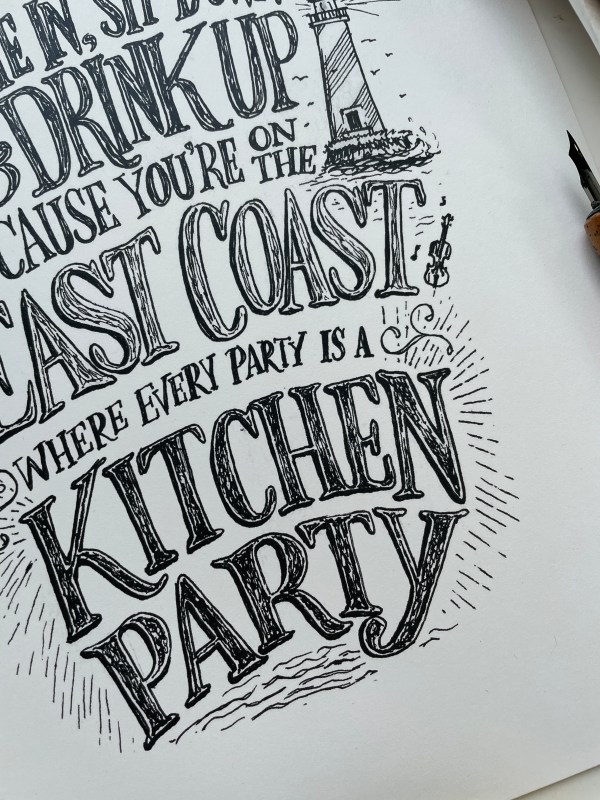 IN, SIT DOWN
& DRINK UP
CAUSE YOU'RE ON THE
EAST COAST
WHERE EVERY PARTY IS A
KITCHEN
PARTY